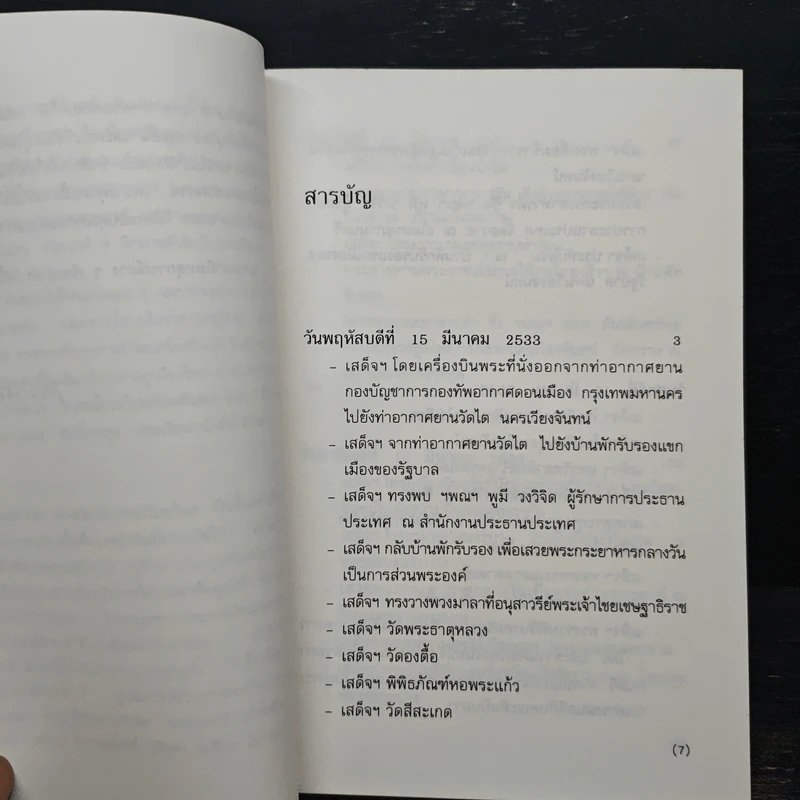 สารบัญ
วันพฤหัสบดีที่ 15 มีนาคม 2533 3
– เสด็จฯ โดยเครื่องบินพระที่นั่งออกจากท่าอากาศยาน
กองบัญชาการกองทัพอากาศดอนเมือง กรุงเทพมหานคร
ไปยังท่าอากาศยานวัดไต นครเวียงจันทน์
– เสด็จฯ จากท่าอากาศยานวัดไต ไปยังบ้านพักรับรองแขก
เมืองของรัฐบาล
– เสด็จฯ ทรงพบ ฯพณฯ พูมี วงวิจิด ผู้รักษาการประธาน
ประเทศ ณ สำนักงานประธานประเทศ
– เสด็จฯ กลับบ้านพักรับรอง เพื่อเสวยพระกระยาหารกลางวัน
เป็นการส่วนพระองค์
– เสด็จฯ ทรงวางพวงมาลาที่อนุสาวรีย์พระเจ้าไชยเชษฐาธิราช
– เสด็จฯ วัดพระธาตุหลวง
– เสด็จฯ วัดองตื้อ
– เสด็จฯ พิพิธภัณฑ์หอพระแก้ว
– เสด็จฯ วัดสีสะเกด
(7)